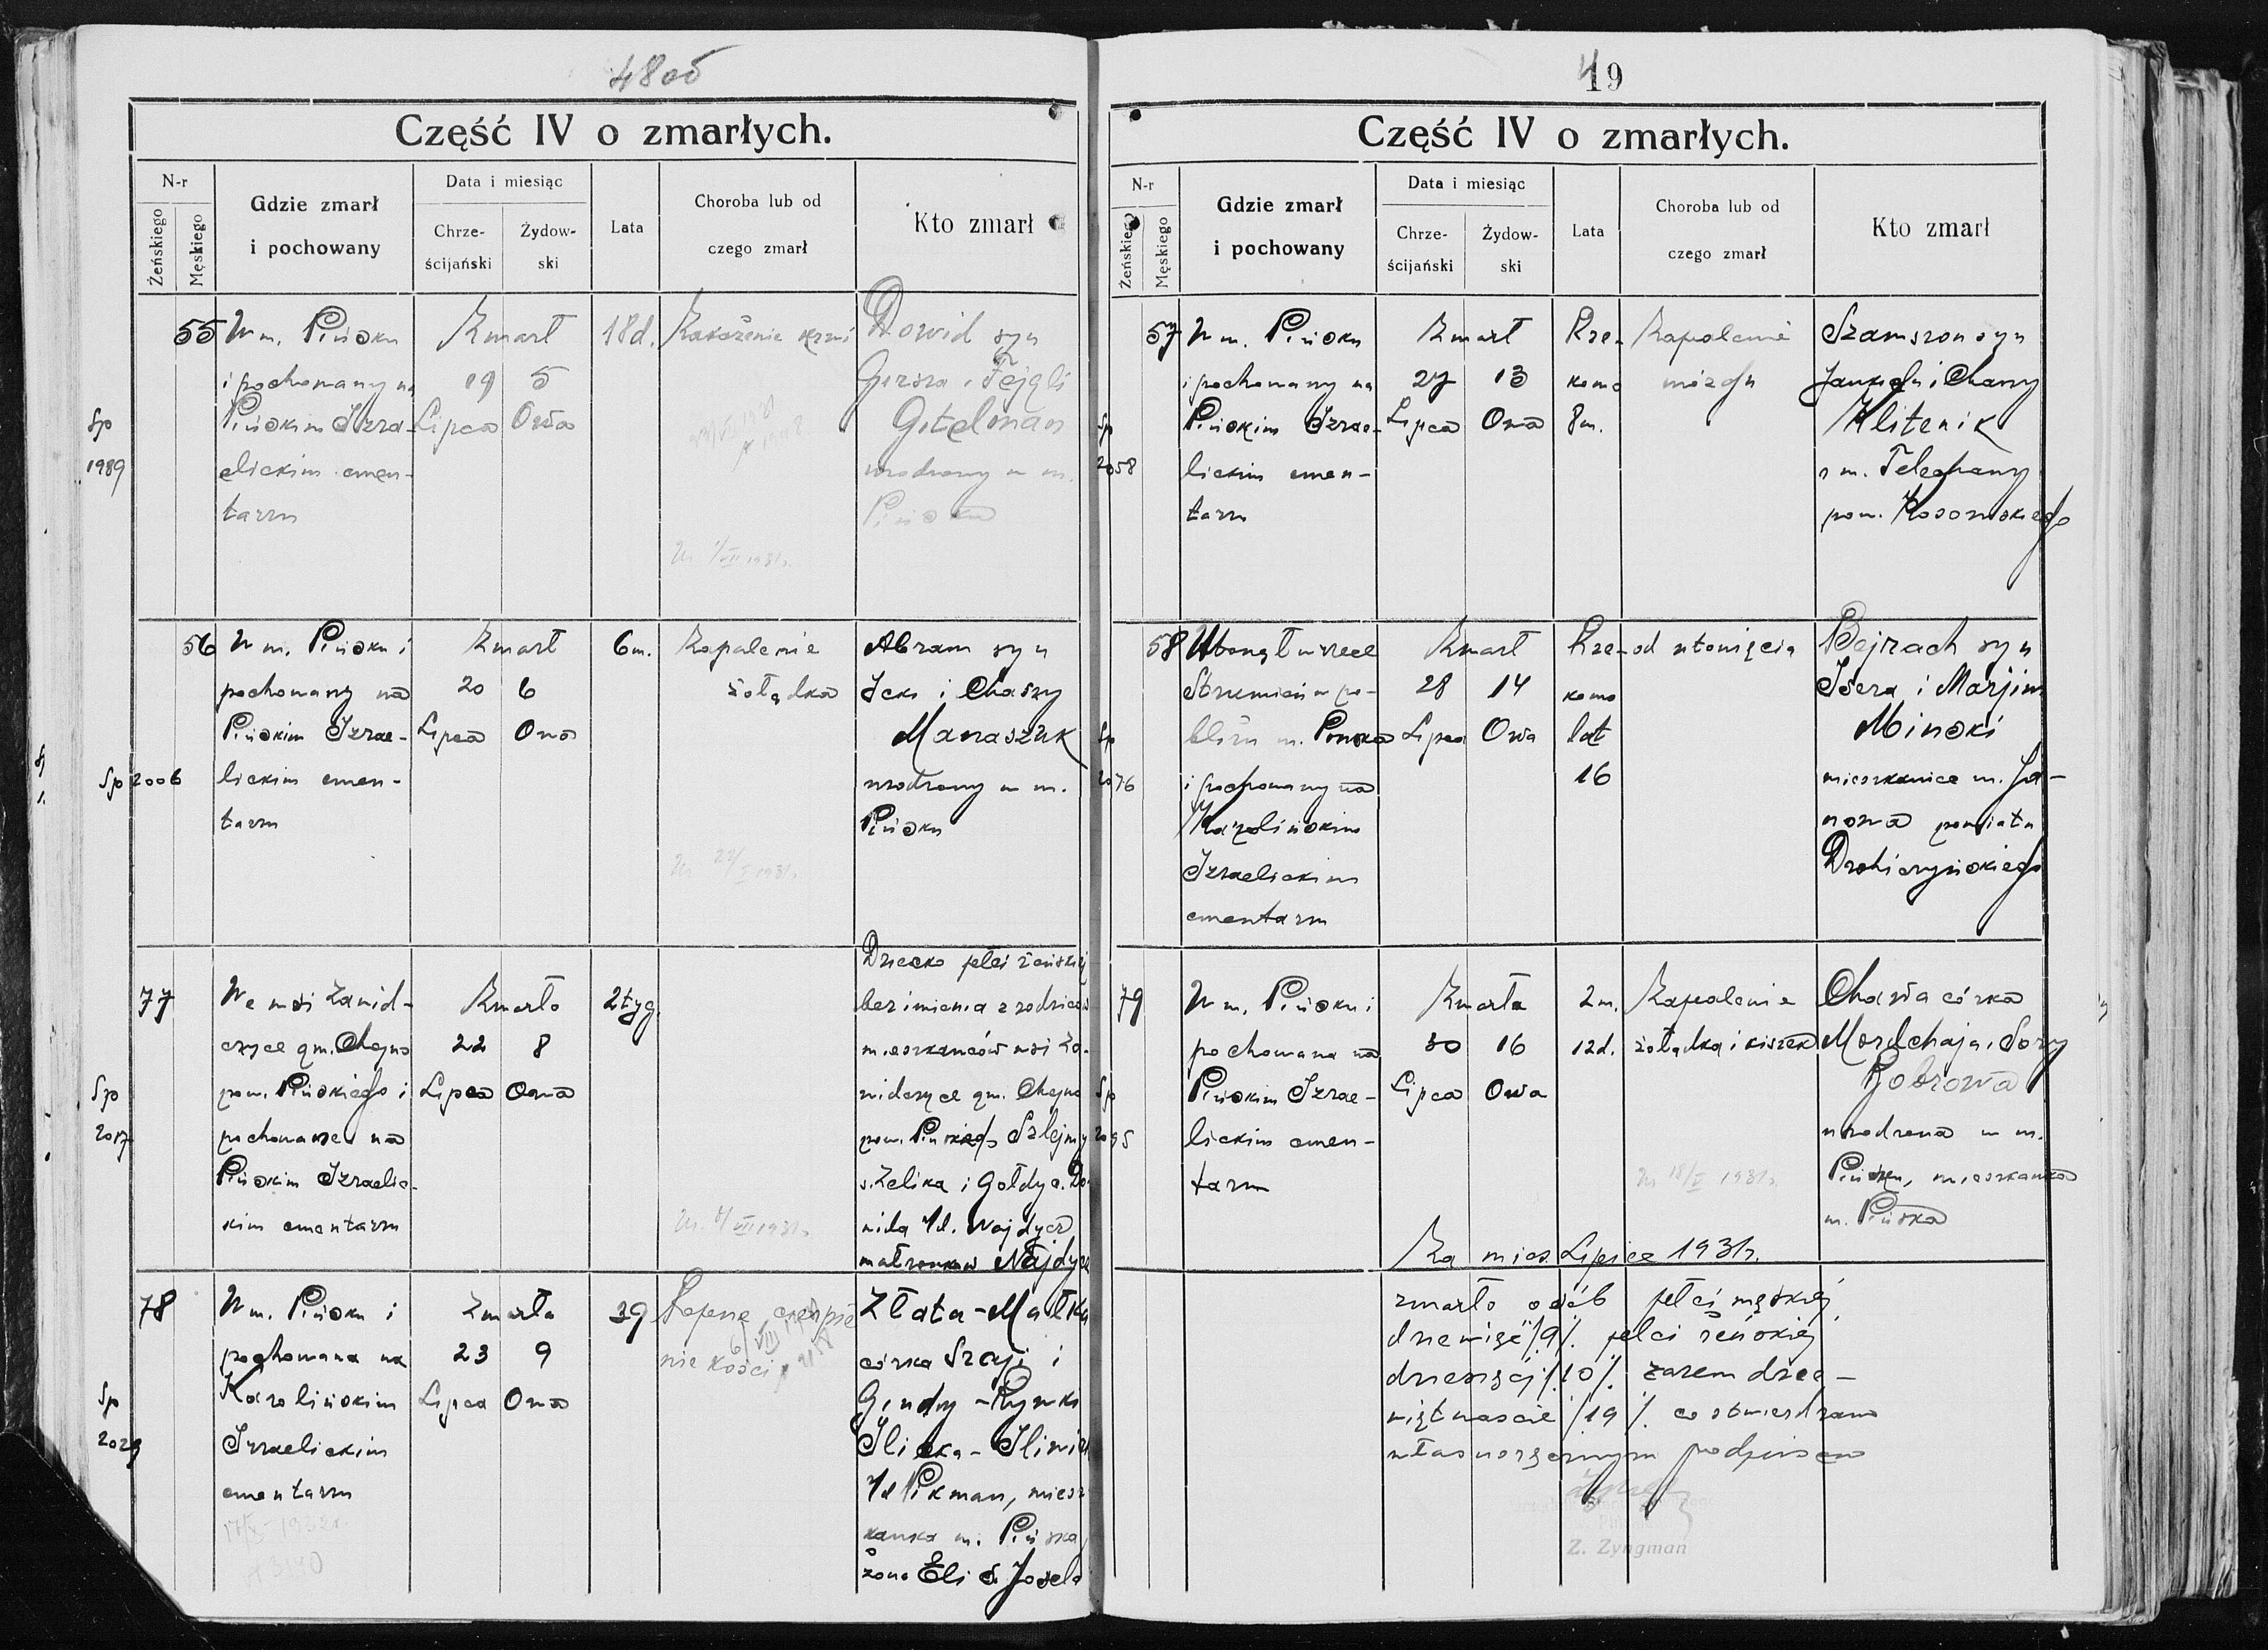 48об
Część IV o zmarłych.
N-r
Żeńskiego
Męskiego
Gdzie zmarł
i pochowany
Data i miesiąc
Chrze-
ścijański
Żydow-
ski
Lata
Choroba lub od
czego zmarł
Kto zmarł
55
W m. Pińsku
i pochowany na
Pińskim Izra-
elickim cmen-
tarzu
Zmarł
19 5
Lipca Owa
18d.
Zakażenie krwi
Ur. 1/VII 1931r.
Dowid syn
Gersza i Fejgli
Gitelman
urodzony w m.
Pińsku
Sp
1989
56
W m. Pińsku i
pochowany na
Pińskim Izrae-
lickim cmen-
tarzu
Zmarł
20 6
Lipca Owa
6m.
Zapalenie
żołądka
Ur. 22/I 1931r.
Abram syn
Icka i Chaszy
Manaszuk
urodzony w m.
Pińsku
Sp 2006
77
We wsi Zawid-
czyce gm. Chojno
pow. Pińskiego i
pochowane na
Pińskim Izraelic-
kim cmentarzu
Zmarło
22 8
Lipca Owa
2tyg.
Ur. 8/VII 1931r.
Dziecko płci żeńskiej
bez imienia z rodziców
mieszkańców wsi Za-
widczyce gm. Chojno
pow. Pińskiego Szlejmy
s. Zelika i Gołdy c. Do-
wida z/d. Wajdycz
małżonków Najdycz
Sp
2017
78
W m. Pińsku i
pochowana na
Karolińskim
Izraelickim
cmentarzu
Zmarła
23 9
Lipca Owa
39
Ropne cierpie
nie kości
Złata-Małka
córka Szaji i
Gindy-Rywki
Ilicka-Iliwicki
z/d Pikman, miesz
kanka m. Pińska
żona Eli s. Josela
Sp
2029
49
Część IV o zmarłych.
N-r
Żeńskiego
Męskiego
Gdzie zmarł
i pochowany
Data i miesiąc
Chrze-
ścijański
Żydow-
ski
Lata
Choroba lub od
czego zmarł
Kto zmarł
57
W m. Pińsku
i pochowany na
Pińskim Izrae-
lickim cmen-
tarzu
Zmarł
27 13
Lipca Owa
Rze-
komo
8m.
Zapalenie
mózgu
Szamszon syn
Jankiela i Chany
Klitenik
z m. Telechany
pow. Kosowskiego
Sp
2058
58
Utonął w rzece
Strumień w po-
bliżu m. Pińska
i pochowany na
Karolińskim
Izraelickim
cmentarzu
Zmarł
28 14
Lipca Owa
Rze-
komo
lat
16
od utonięcia
Bejrach syn
Isera i Marjim
Minski
mieszkaniec m. Ja-
nowa powiatu
Drohiczyńskiego
Sp
2076
79
W m. Pińsku i
pochowana na
Pińskim Izrae-
lickim cmen-
tarzu
Zmarła
30 16
Lipca Owa
2m.
12d.
Zapalenie
żołądka i kiszek
Ur 18/V 1931r.
Chawa córka
Mordchaja i Sory
Bobrowa
urodzona w m.
Pińsku, mieszkanka
m. Pińska
Sp
2095
Za mies. Lipiec 1931r.
zmarło osób płci męskiej
dziewięć /9/. płci żeńskiej
dziesięć /10/. razem dzie-
więtnaście /19/. co stwierdzam
własnoręcznym podpisem
Z. Zyngman